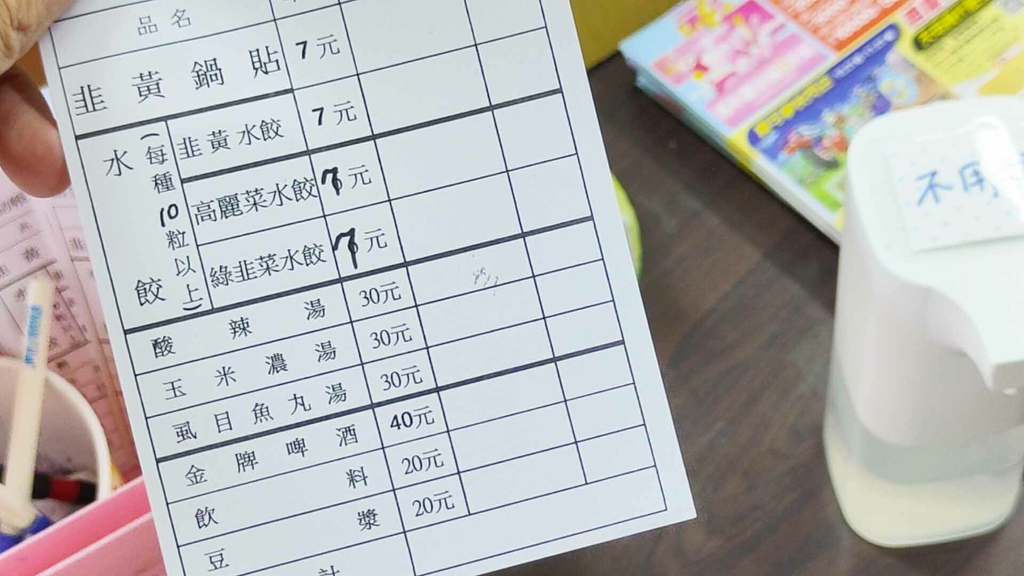 品名
韭黃鍋貼 7元
水餃
(每種10粒以上)
韭黃水餃 7元
高麗菜水餃 7元
綠韭菜水餃 7元
酸辣湯 30元
玉米濃湯 30元
虱目魚丸湯 30元
金牌啤酒 40元
飲料 20元
豆漿 20元
計
不用